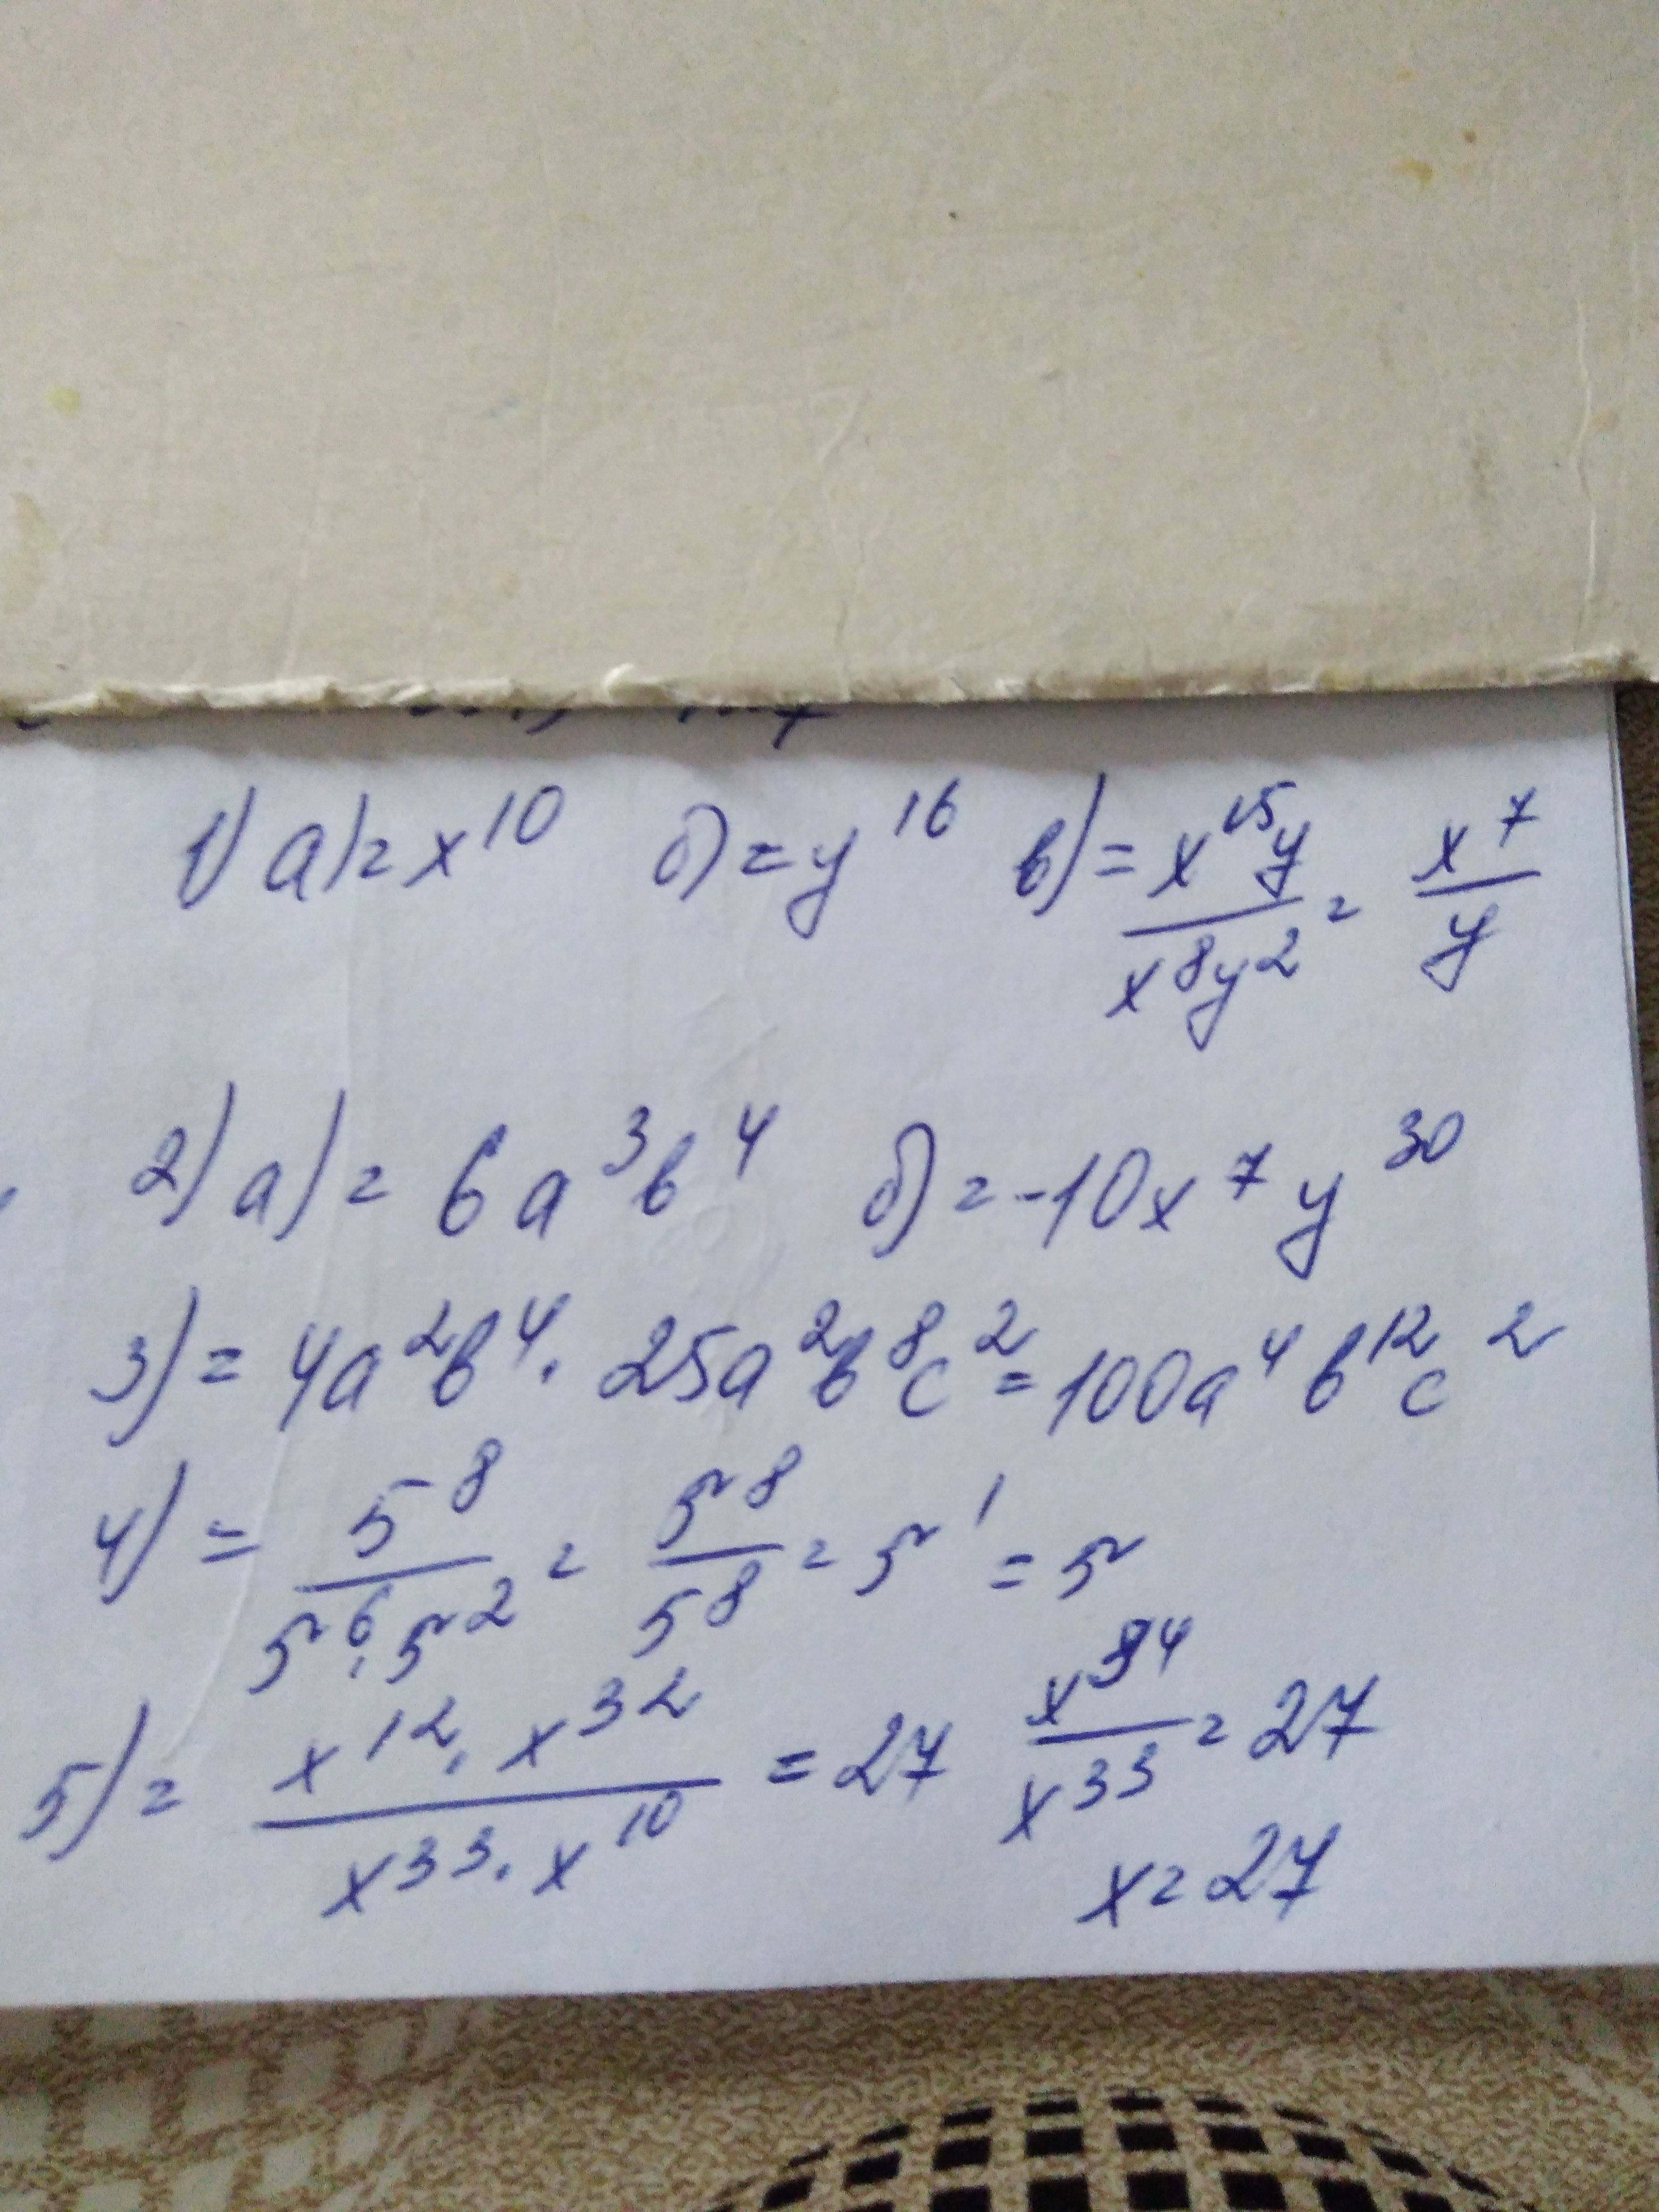 1) а) = x^10 б) = y^16 в) = x^15y / x^8y^2 = x^7 / y
2) а) = 6a^3b^4 б) = -10x^7y^30
3) = 4a^2b^4 · 25a^2b^8c^2 = 100a^4b^12c^2
4) = 5^8 / 5^6 · 5^2 = 5^8 / 5^8 = 5^1 = 5
5) = x^12 · x^32 / x^33 · x^10 = 27 x^34 / x^33 = 27
x = 27